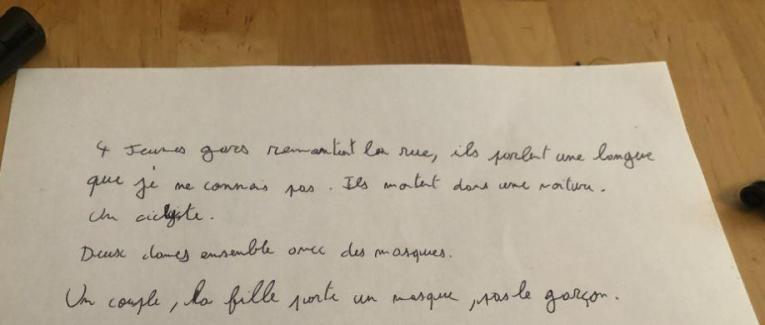 4 Jeunes gars remontent la rue, ils parlent une langue
que je ne connais pas. Ils montent dans une voiture.
Un cicliste.
Deux dames ensemble avec des masques.
Un couple, la fille porte un masque, pas le garçon.